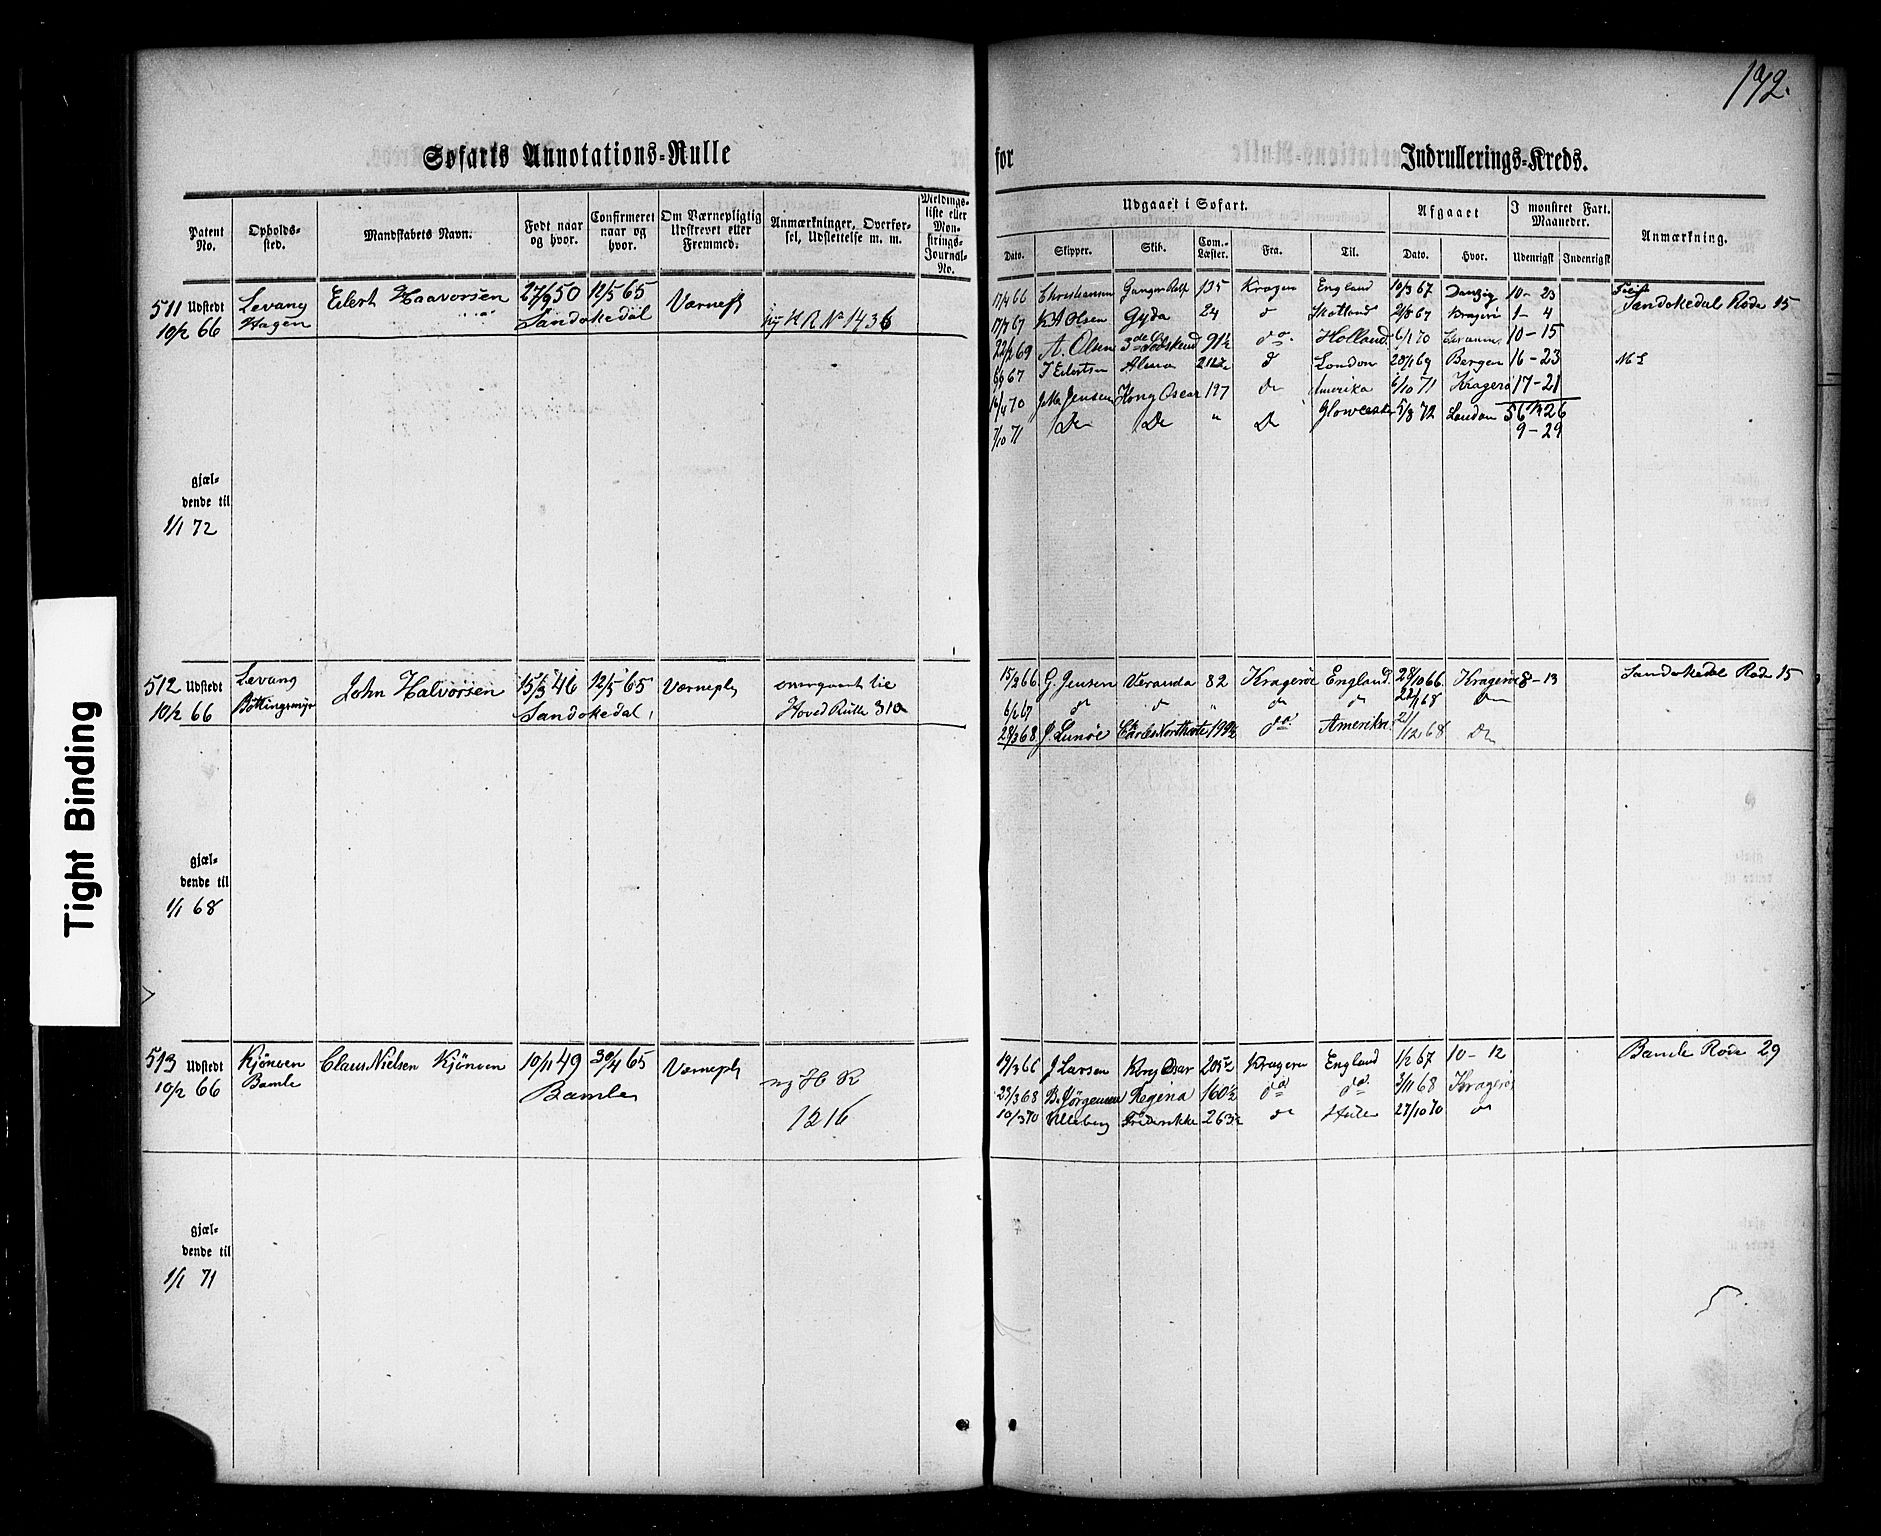 192.
Søfarts Annotations-Rulle
for
Indrullerings-Kreds.
Patent No.
Opholds-sted.
Mandskabets Navn.
Født naar og hvor.
Confirmeret naar og hvor.
Om Værnepligtig Udskrevet eller Fremmed.
Anmærkninger, Overførsel, Udslettelse m. m.
Meldings-liste eller Mønstrings-Journal-No.
Udgaaet i Søfart.
Afgaaet
I mønstret Fart. Maaneder.
Anmærkning.
Dato. Skipper. Skib. Com.-Læster. Fra. Til. Dato. Hvor. Udenrigsk Indenrigsk
511 Udstedt 10/2 66
Levang Hagen
Eilert Haavorsen
27/9 50 12/5 65
Sandokedal
Værnepl
ny H R No 1436
17/4 66 Christiansen Ganger Rolf 135 Kragerø England 10/3 67 Danzig 10 - 23
Sandokedal Rode 15
17/7 67 K A Olsen Gyda 24 do Skotland 2/8 67 Kragerø 1 - 4
22/2 69 A. Olsen 91½ do. Holland 6/1 70 10 - 15
67 T Eilertsen Alma do London 28/1 69 Bergen 16 - 23
16/4 70 Jensen Kong Oscar 197 do Amerika 6/10 71 Kragerø 17 - 21
7/10 71 Do Do " Do Glowcester 5/8 72 London 56 26
9 - 29
gjæl-
dende til
1/1 72
512 Udstedt 10/2 66
Levang
John Halvorsen
15/3 46 12/5 65
Sandokedal
Værnepl
overgaaet til
Hoved Rulle 310
15/3 66 G. Jensen Veranda 82 Kragerø England 28/10 66 Kragerø 8 - 13
Sandokedal Rode 15
6/2 67 do do " do do 22/1 68 do
28/3 68 J. Lunøe Charles Northcote 199½ do Amerika 21/12 68 do
gjæl-
dende til
1/1 68
513 Udstedt 10/2 66
Kjønsen Bamle
Claus Nielsen Kjønsen
10/11 49 30/4 65
Bamle
Værnepl
ny H R
1216
19/3 66 J Larsen Kong Oscar 205½ Kragerø England 1/2 67 10 - 12
Bamle Rode 29
23/3 68 B. Jørgensen Regina 160½ do do 3/11 68 Kragerø
10/3 70 Ulleberg Frederikke 263½ do 27/10 70 do
gjæl-
dende til
1/1 71
Tight Binding